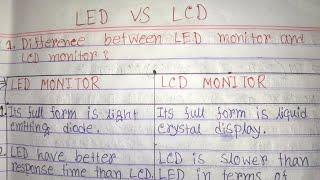 LED VS LCD
1. Difference between LED monitor and
LCD monitor?
LED MONITOR
LCD MONITOR
1. Its full form is light
emitting diode.
Its full form is liquid
crystal display.
2. LED have better
response time than LCD.
LCD is slower than
LED in terms of